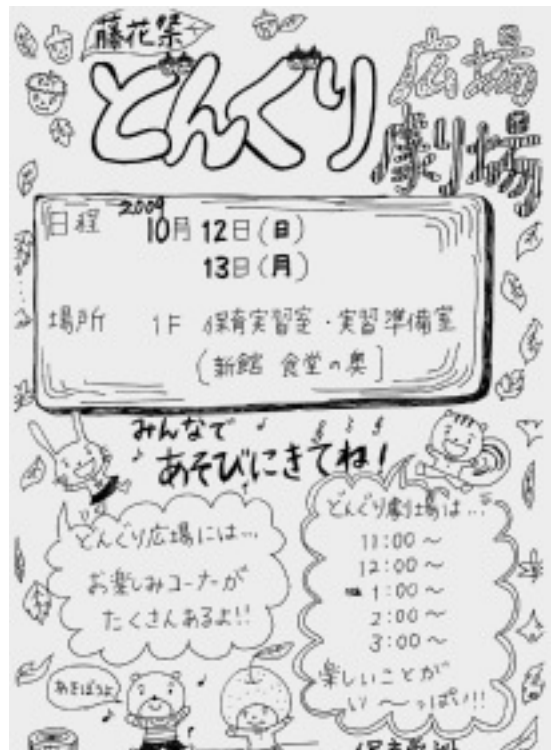 藤花祭
どんぐり広場
劇場
日程 2009 10月12日(日)
13日(月)
場所 1F 保育実習室・実習準備室
(新館 食堂の奥)
みんなで
あそびにきてね!
どんぐり広場には…
お楽しみコーナーが
たくさんあるよ!!
どんぐり劇場は…
11:00～
12:00～
1:00～
2:00～
3:00～
楽しいことが
い～っぱい!!
あそぼうよ